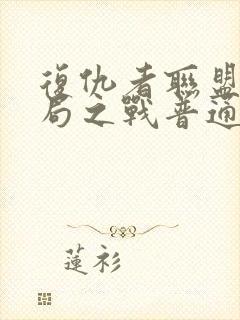 復仇者聯盟
局之戰普通
蓮衫